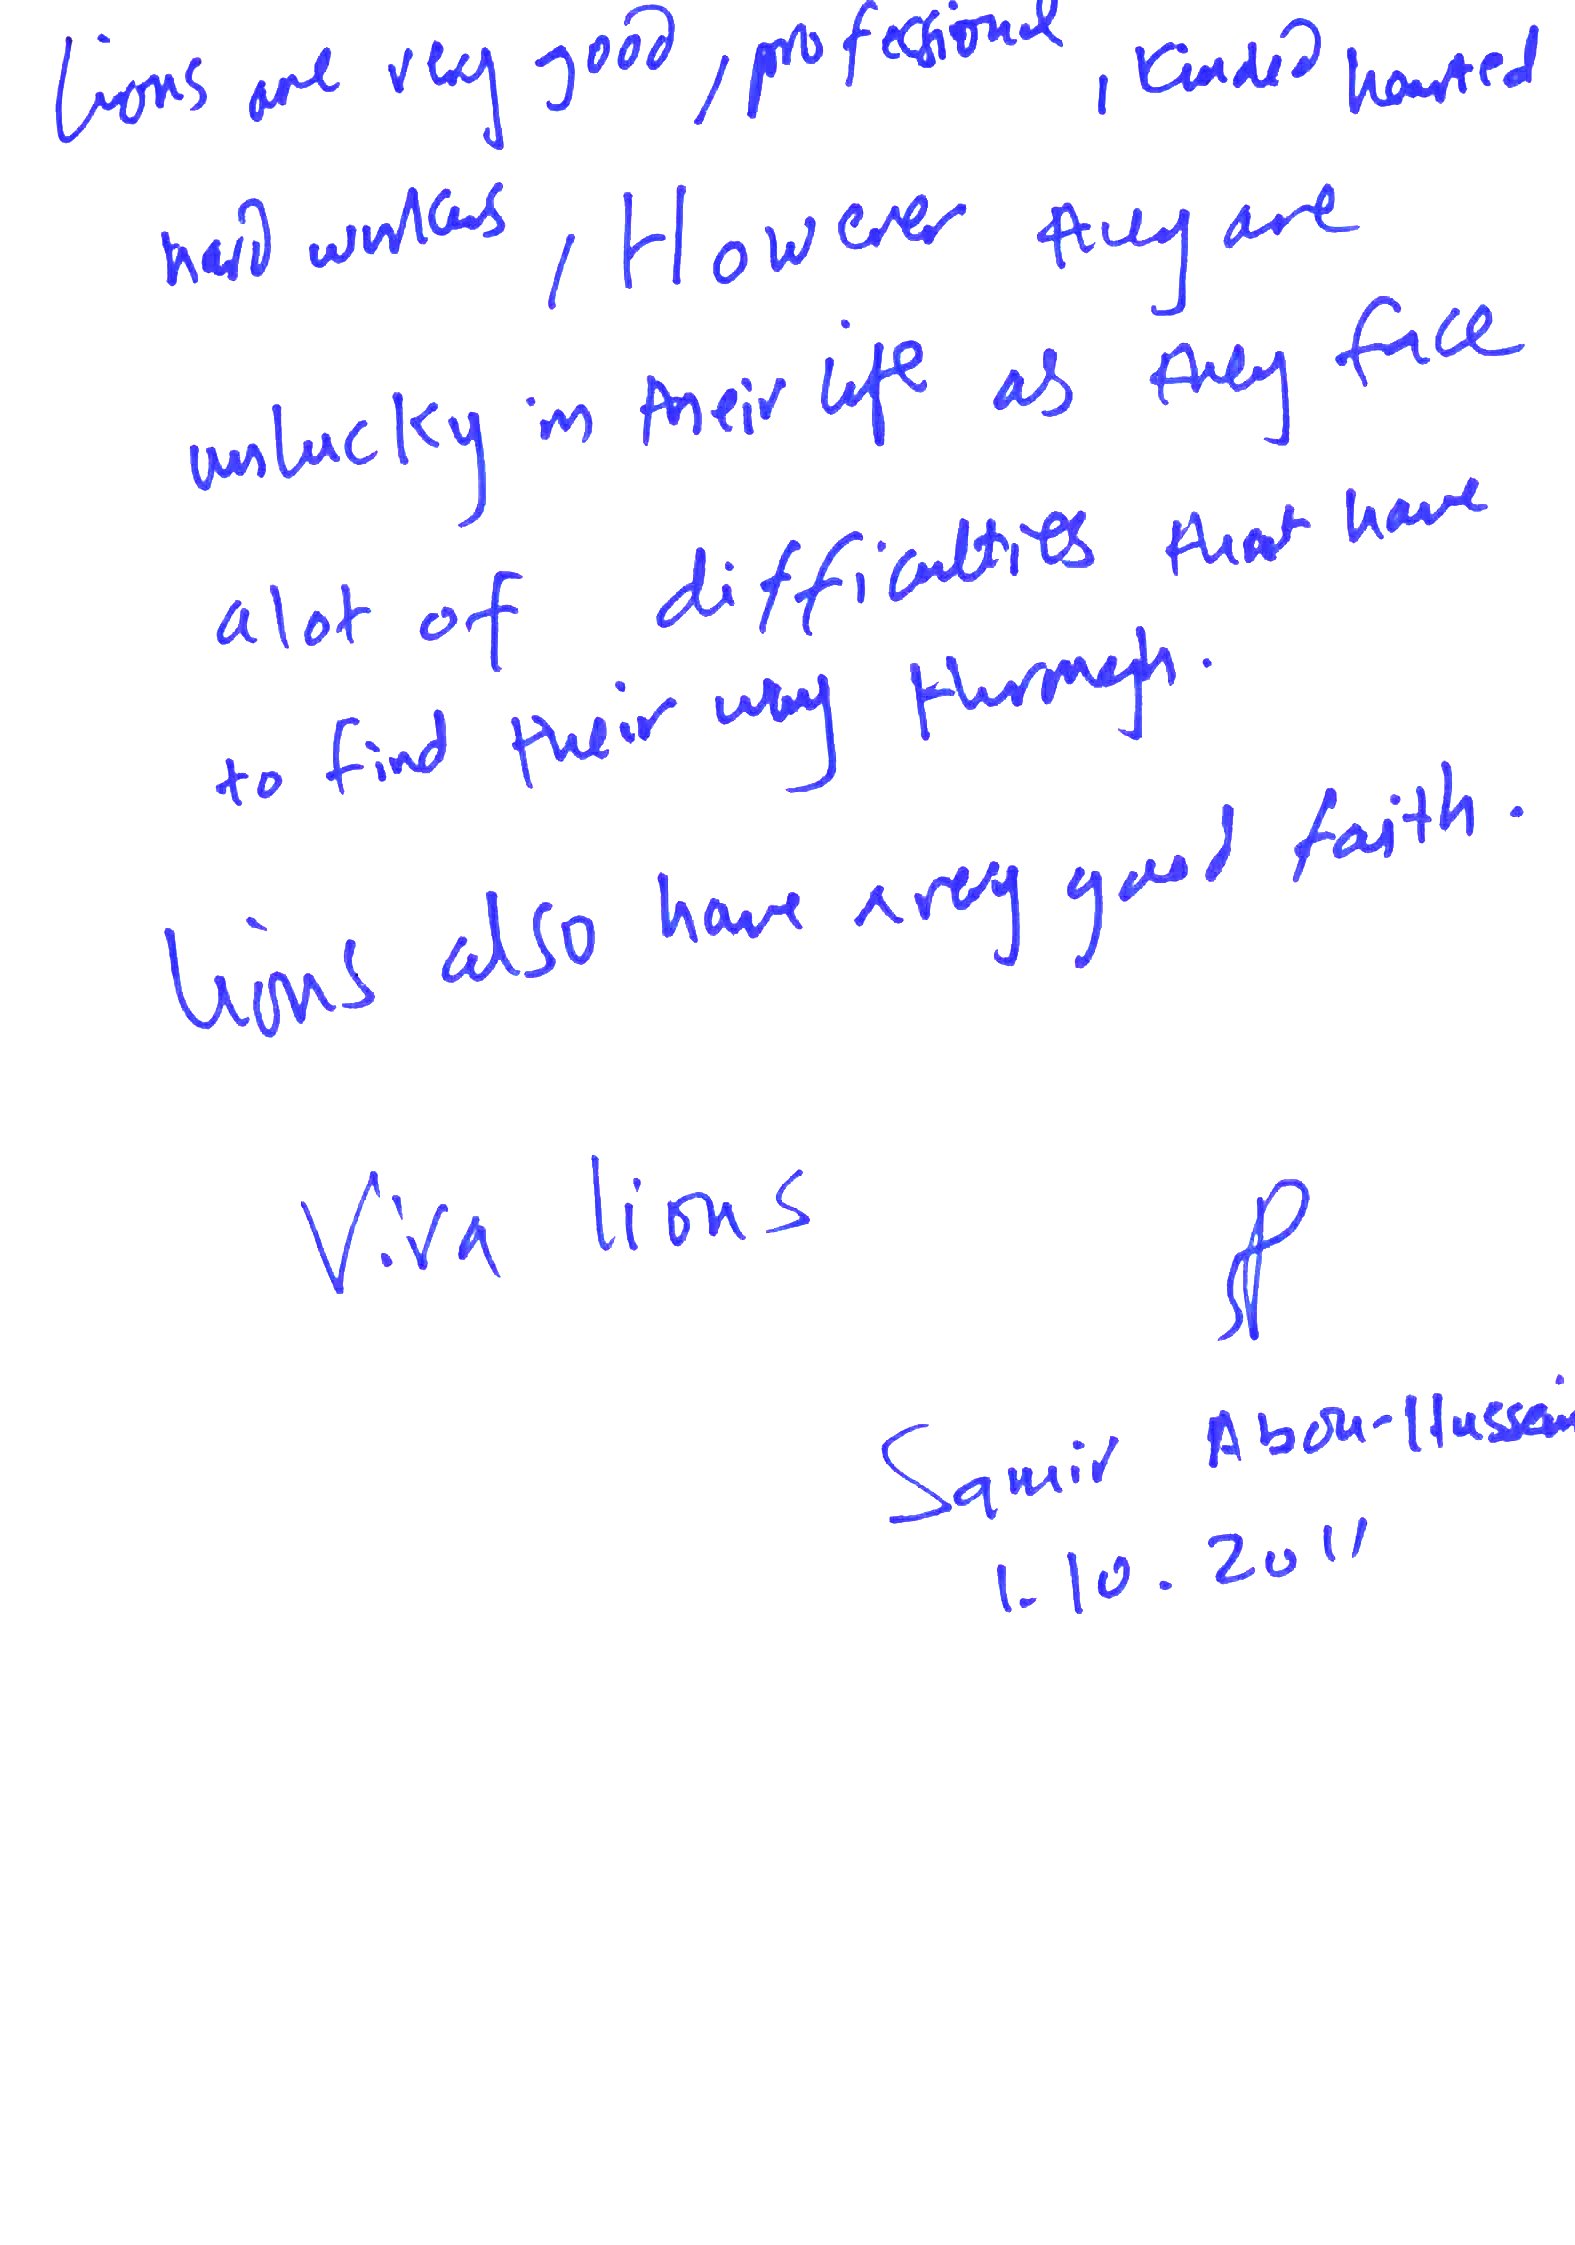 Lions are very good, professional, Kinded hearted
hard workers, However they are
unlucky in their life as they face
alot of difficulties that have
to find their way through.
Lions also have a very good faith.
Viva lions
Samir Abou-Hussein
1.10.2011